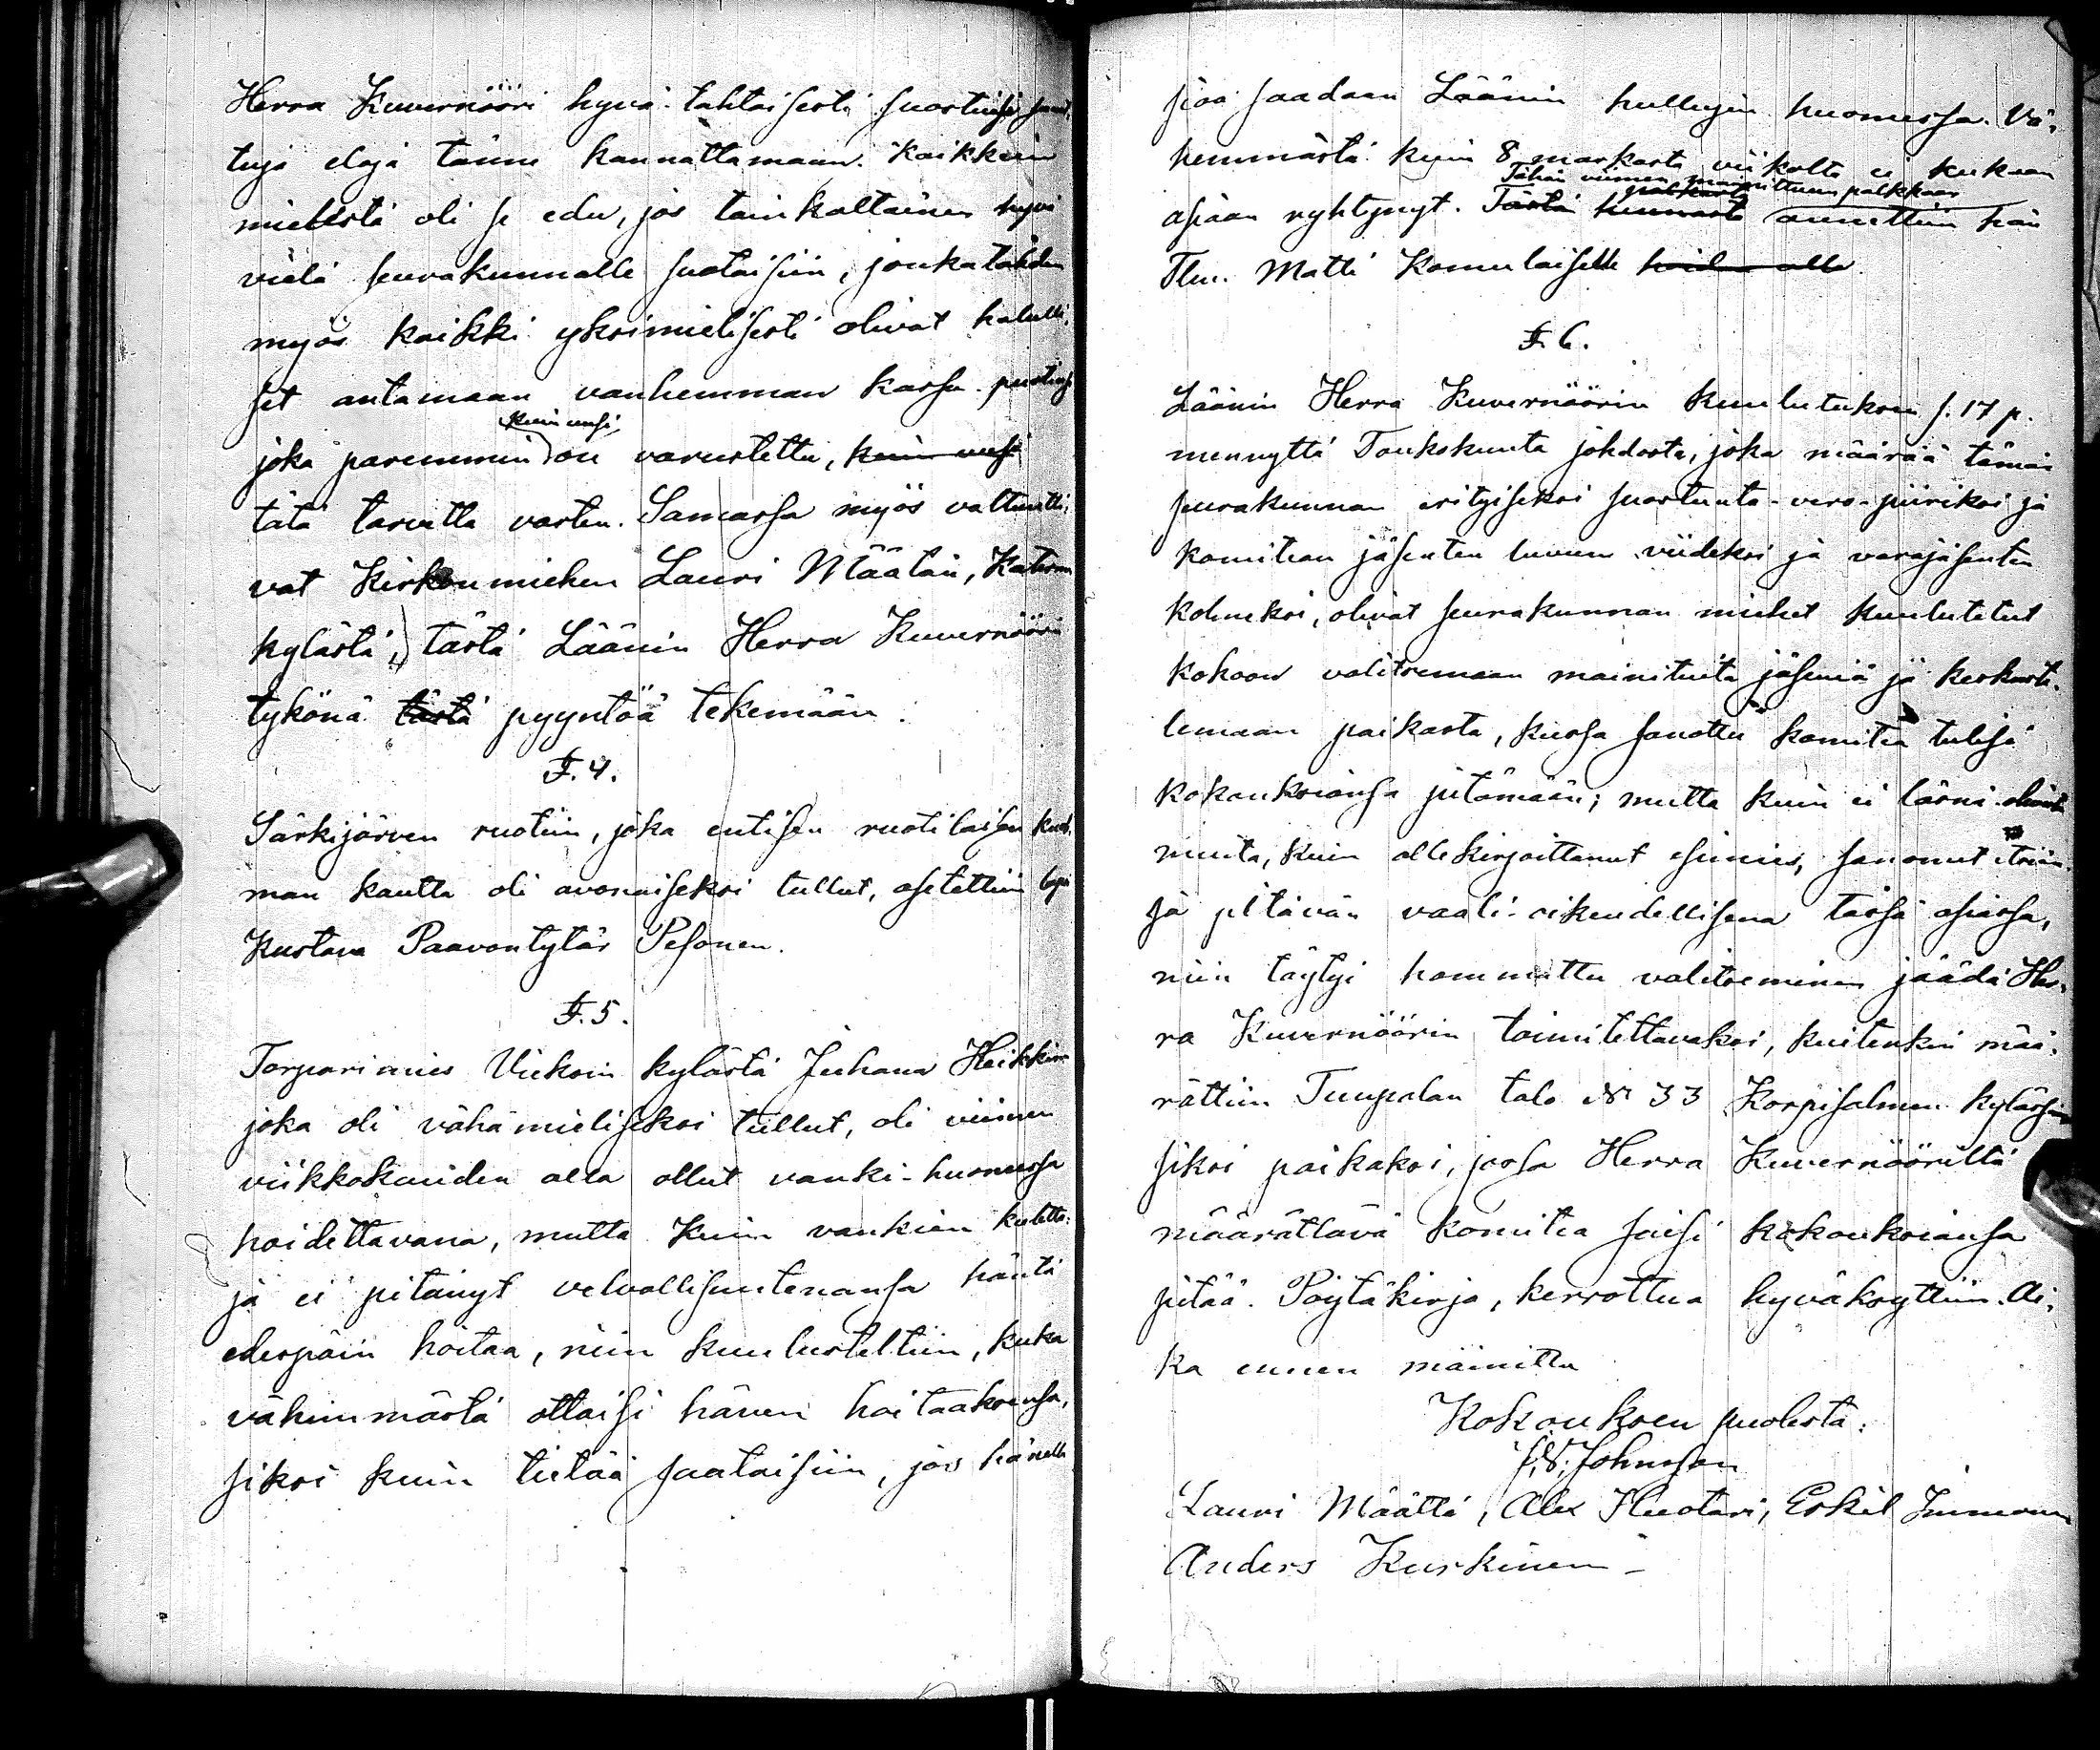 Herra Kuvernööri hyvä-tahtoisesti suostuisi
tuja eloja tänne kannattamaan. Kaikkein
mielestä oli se edu, jos tainkaltainen hyvä
vielä seurakunnalle suotaisiin, jonka tähden
myös kaikki yksimielisesti olivat halulli-
set antamaan vanhemman kassa
kuin uusi,
joka paremmin on varustettu, kuin uusi
tätä tarvetta varten. Samassa myös valtuutti-
vat Kirkonmiehen Lauri Määtän,
kylästä, tästä Läänin Herra Kuvernöörin
tykönä tästä pyyntöä tekemään.
§. 4.
Särkijärven ruotiin, joka entisen ruotilaisen kuole-
man kautta oli avonaiseksi tullut, asetettiin
Kustava Paavontytär Pesonen.
§. 5.
Torpari mies Vieksin kylästä Juhana Heikkinen
joka oli vähämieliseksi tullut, oli viimen
viikkokauden alla ollut vanki-huoneessa
hoidettavana, mutta kuin vankien kuletta-
ja ei pitänyt velvollisuutenansa häntä
edespäin hoitaa, niin kuulusteltiin, kuka
vähimmästä ottaisi hänen hoitaaksensa,
siksi kuin tietää saataisiin, jos hänelle
sioa saadaan Läänin hullujen huoneessa. Vä-
hemmästä kuin 8 markasta viikolta ei kukaan
Tähän viimen mainittuun palkkaan
palkasta
asiaan ryhtynyt. Tästä summasta annettiin hän
Tlm. Matti Komulaiselle hoidon alle.
§. 6.
Läänin Herra Kuvernöörin kuulutuksen s. 17 p.
mennyttä Toukokuuta johdosta, joka määrää tämän
seurakunnan erityiseksi suostunta-vero-piiriksi ja
komitean jäsenten luvun viideksi ja varajäsenten
kolmeksi, olivat seurakunnan miehet kuulutetut
kokoon valitsemaan mainituita jäseniä ja keskuste-
lemaan paikasta, kussa sanottu komitea tulisi
kokouksiansa pitämään; mutta kuin ei läsnä olevista
muita, kuin allekirjoittanut esimies, sanonut itseän-
sä pitävän vaali-oikeudellisena tässä asiassa,
niin täytyi hommattu valitseminen jäädä Her-
ra Kuvernöörin toimitettavaksi, kuitenkin mää-
rättiin Tuupalan talo No 33 Korpisalmen kylässä
siksi paikaksi, jossa Herra Kuvernööriltä
määrättävä komitea saisi kokouksiansa
pitää. Pöytäkirja, kerrottua hyväksyttiin. Ai-
ka ennen mainittu
Kokouksen puolesta:
Johnsson
Lauri Määttä, Alex Huotari, Eskil Immonen
Anders Kurkinen –